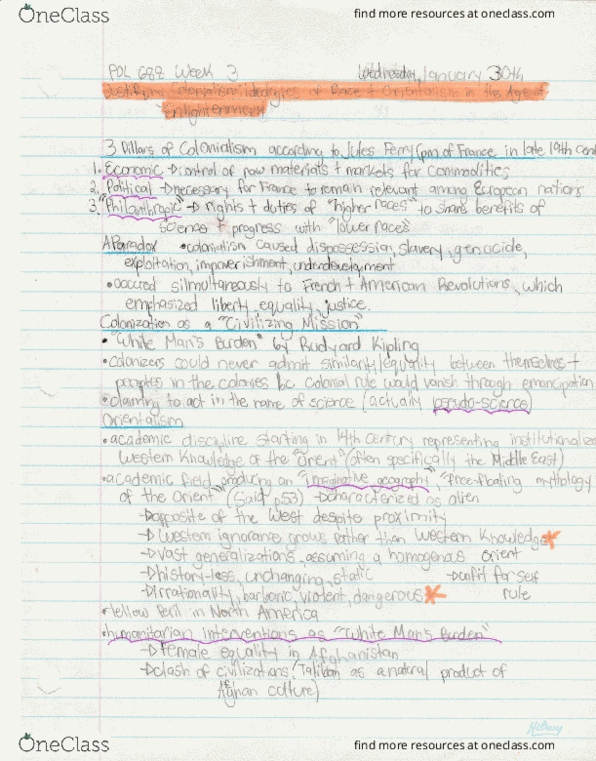 OneClass
find more resources at oneclass.com
POL 688 Week 3 Wednesday, January 30th
Justifying Colonialism: Ideologies of Race + Orientalism in the Age of
Enlightenment
3 Pillars of Colonialism according to Jules Ferry (pm of France in late 19th cent
1. Economic → control of raw materials + markets for commodities
2. Political → necessary for France to remain relevant among European nations
3. "Philanthropic" → rights + duties of "higher races" to share benefits of
science + progress with "lower races"
A Paradox • colonialism caused dispossession, slavery, genocide,
exploitation, impoverishment, underdevelopment
• occured silmultaneously to French + American Revolutions, which
emphasized liberty, equality, justice.
Colonization as a "Civilizing Mission"
• "White Man's Burden" by Rudyard Kipling
• colonizers could never admit similarity/equality between themselves +
peoples in the colonies bc colonial rule would vanish through emancipation
• claiming to act in the name of science (actually pseudo-science)
Orientalism
• academic discipline starting in 14th century representing institutionaliz
Western Knowledge of the "Orient" (often specifically the Middle East)
• academic field producing an "imaginative geography", "free-floating mythology
of the Orient" (Said, p53) → characterized as alien
→ opposite of the West despite proximity
→ Western ignorance grows rather than Western Knowledge
→ vast generalizations, assuming a homogenous orient
→ history-less, unchanging, static → unfit for self
→ irrationality, barbaric, violent, dangerous rule
• Yellow Peril in North America
• humanitarian interventions as "White Man's Burden"
→ female equality in Afghanistan
→ clash of civilizations (Taliban as a natural product of
Afghan culture)
OneClass
find more resources at oneclass.com